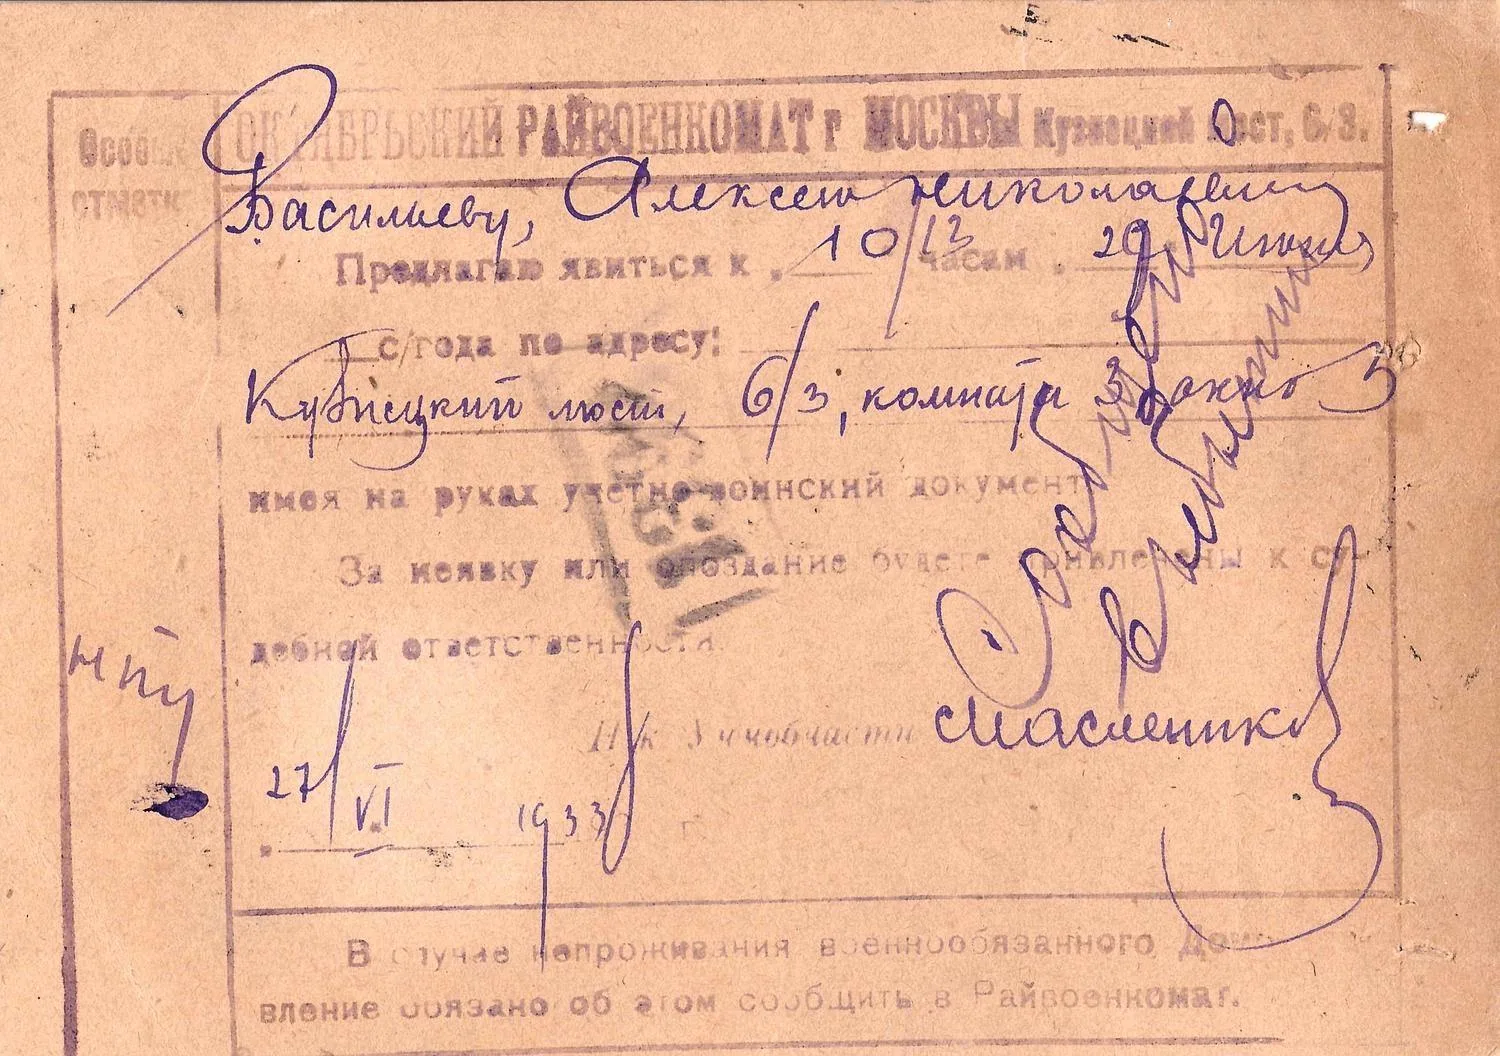 Особые
отметк
ОКТЯБРЬСКИЙ РАЙВОЕНКОМАТ г МОСКВЫ Кузнецкий Мост, 6/3.
Васильеву, Алексею Николаевичу
Предлагаю явиться к 10/13 часам 29 Июня
с/года по адресу:
Кузнецкий мост, 6/3, комната 3 окно 3
имея на руках учетно-воинский документ
За неявку или опоздание будете привлечены к су-
дебной ответственности.
нпу
Масленников
27/VI 1933 г.
В случае непроживания военнообязанного Домо
вление обязано об этом сообщить в Райвоенкомат.